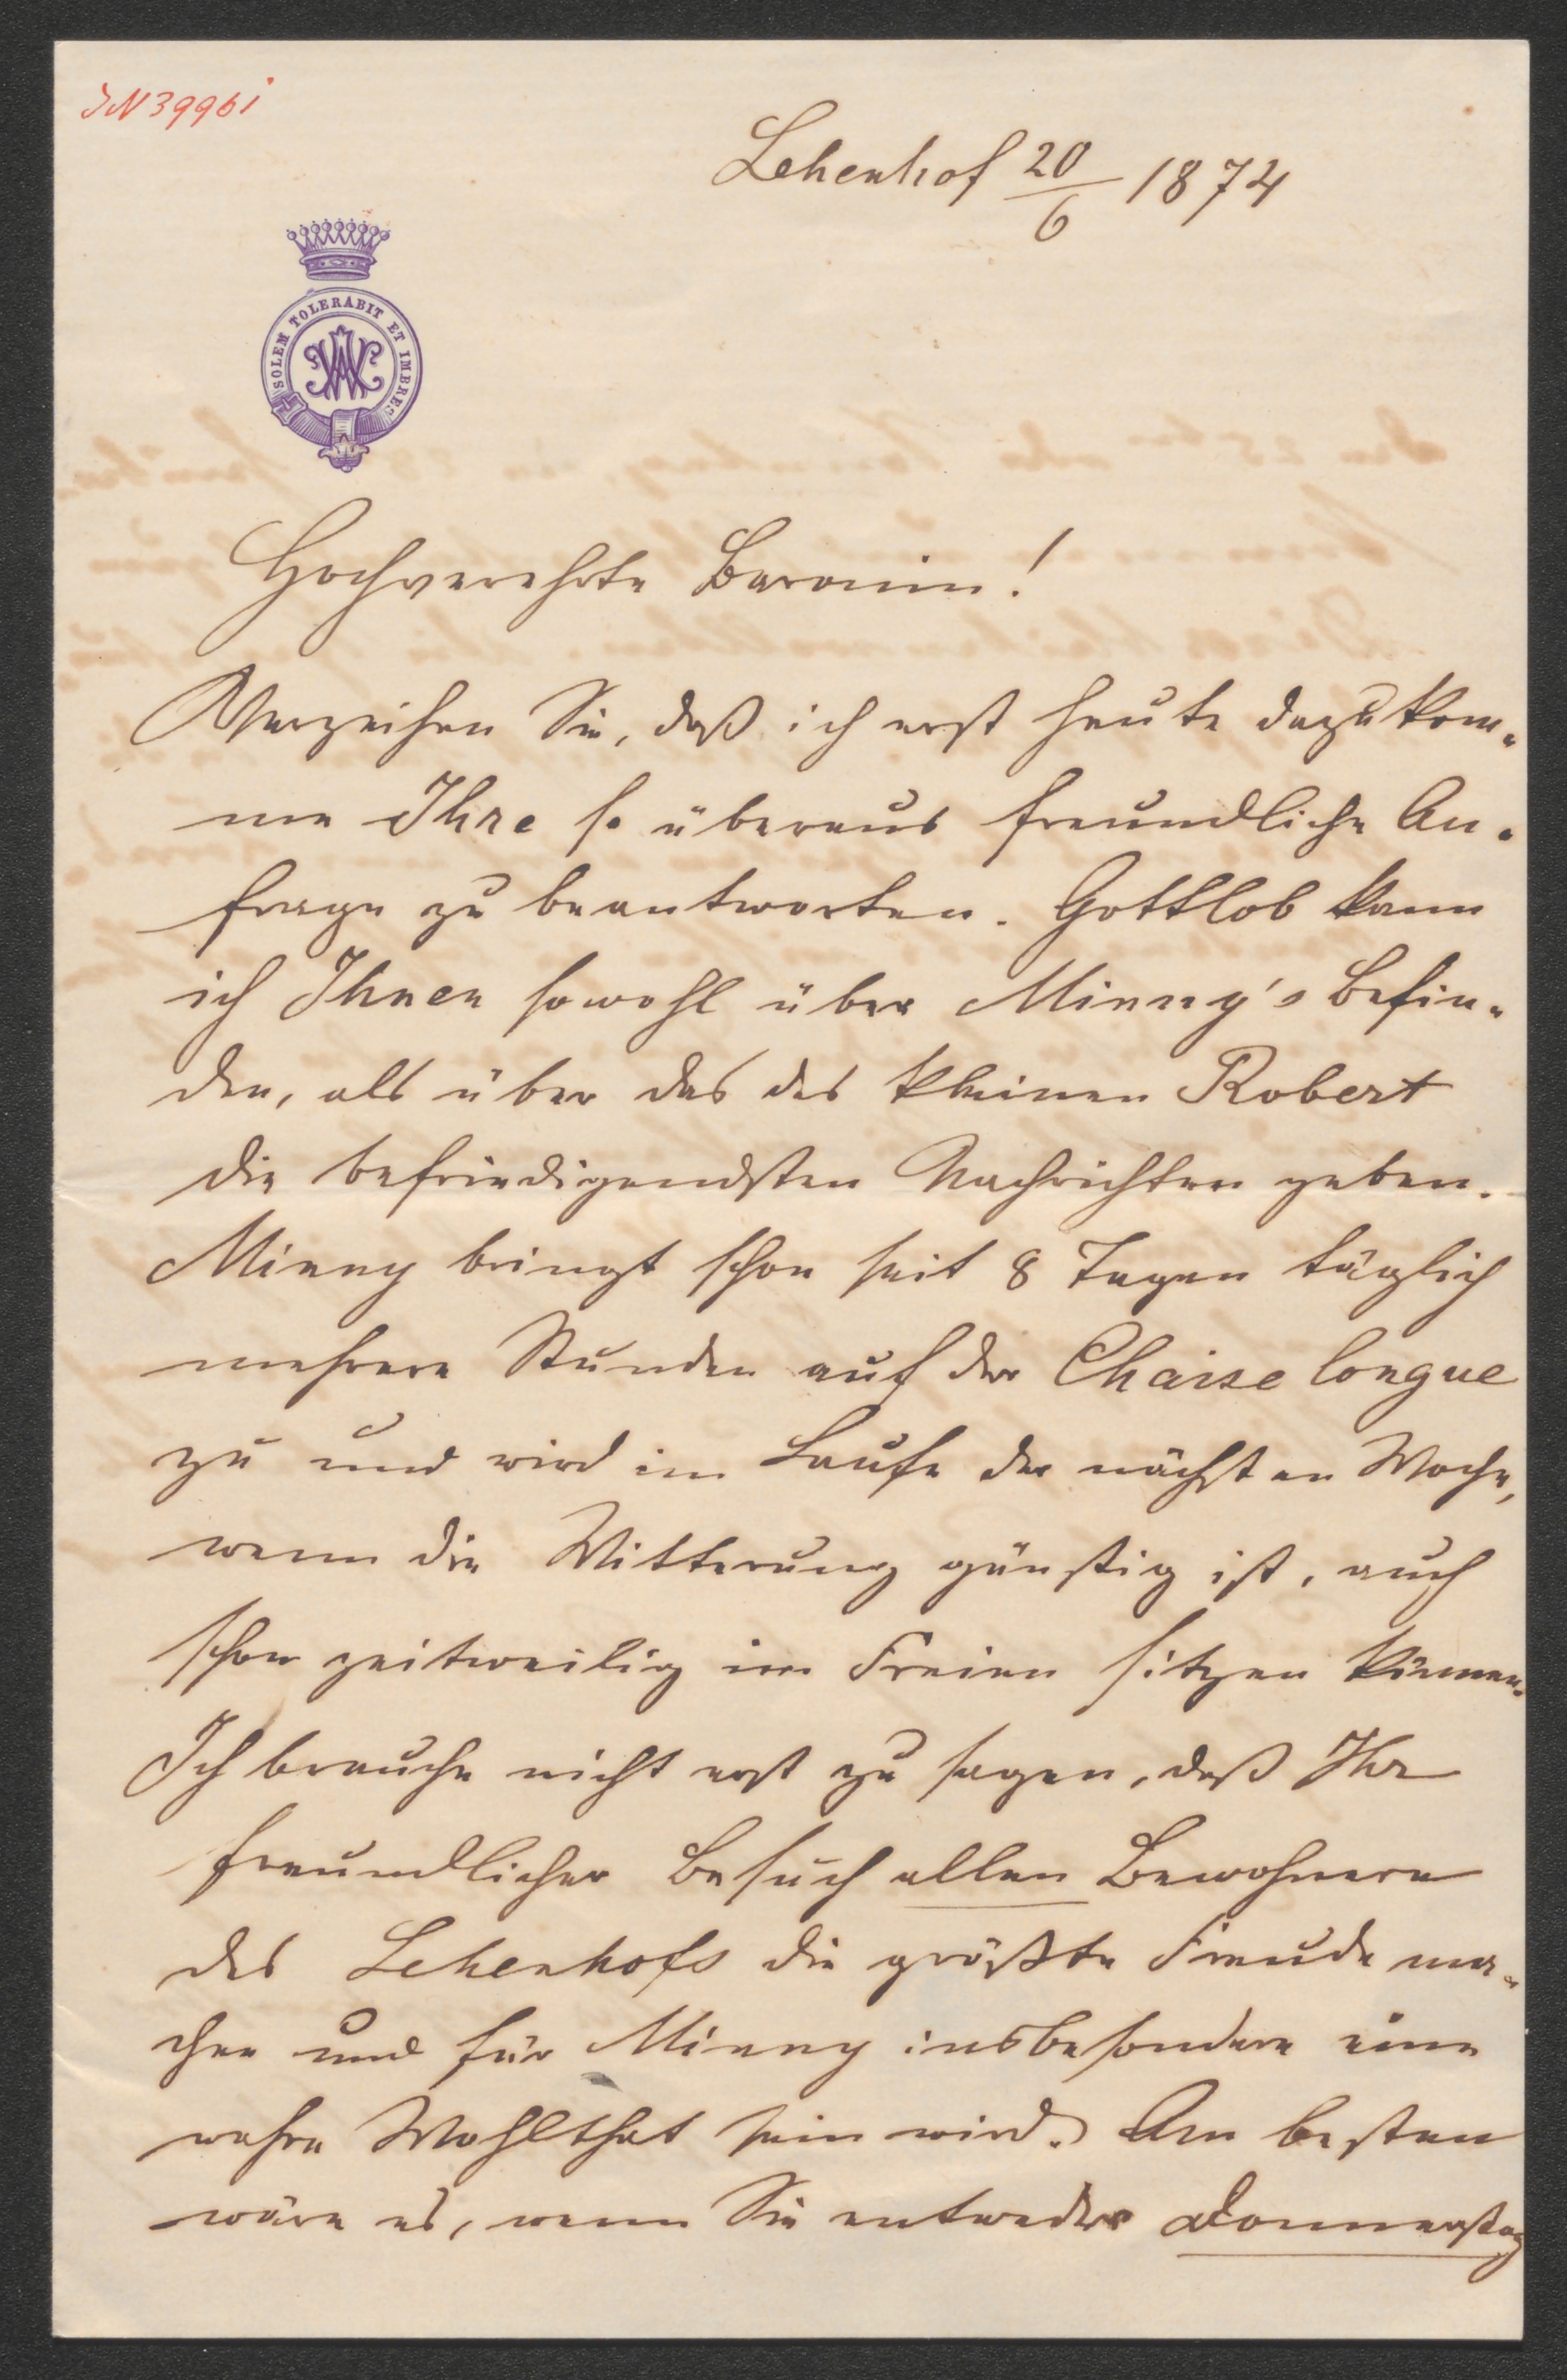 JN 39961
Lehenhof 20/6 1874
SOLEM TOLERABIT ET IMBRES
Hochverehrte Baronin!
Verzeihen Sie, daß ich erst heute dazu kom-
me Ihre so überaus freundliche An-
frage zu beantworten. Gottlob kann
ich Ihnen sowohl über Minny's Befin-
den, als über das des kleinen Robert
die befriedigendsten Nachrichten geben.
Minny bringt schon seit 8 Tagen täglich
mehrere Stunden auf der Chaise longue
zu und wird im Laufe der nächsten Woche,
wenn die Witterung günstig ist, auch
schon zeitweilig im Freien sitzen können.
Ich brauche nicht erst zu sagen, daß Ihr
freundlicher Besuch allen Bewohnern
des Lehenhofs die größte Freude ma-
chen und für Minny insbesondere eine
wahre Wohlthat sein wird. Am besten
wäre es, wenn Sie entweder Donnerstag